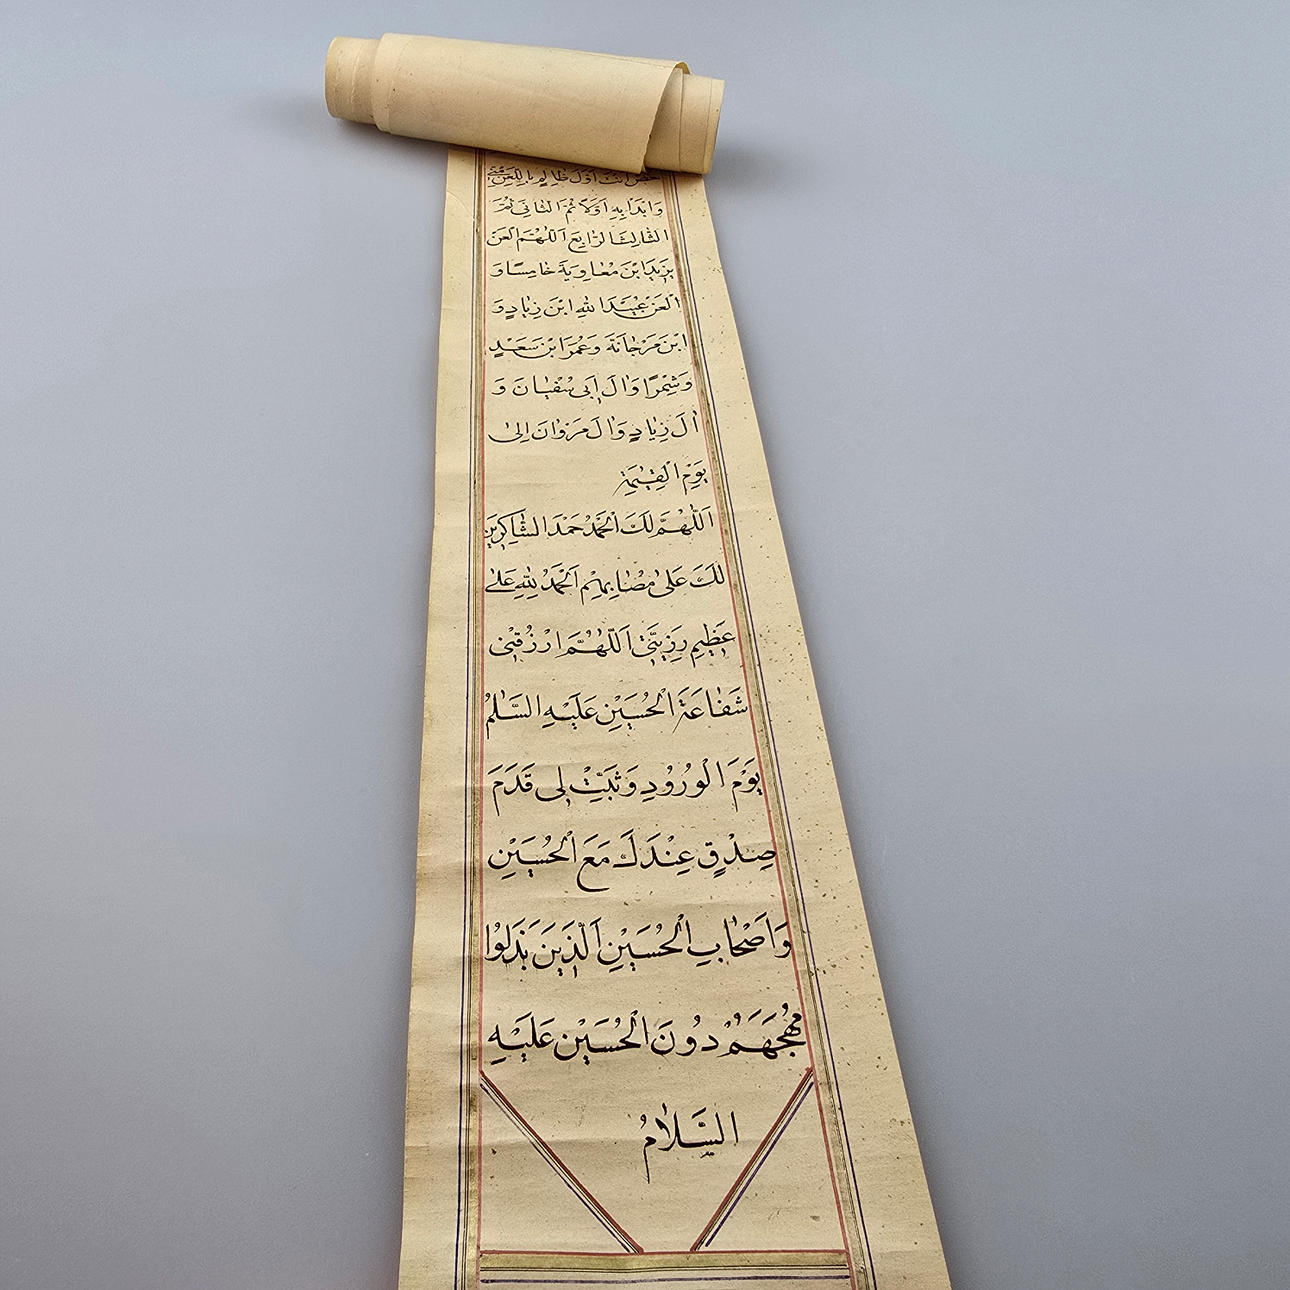 خُصَّ اَنْتَ اَوَّلَ ظَالِمٍ بِاللَّعْنِ مِنّٖى
وَابْدَاْ بِهٖ اَوَّلًا ثُمَّ الثَّانِىَ ثُمَّ
الثَّالِثَ الرَّابِعَ اَللّٰهُمَّ الْعَنْ
يَزٖيدَ ابْنَ مُعَاوِيَةَ خَامِسًا وَ
الْعَنْ عُبَيْدَ اللّٰهِ ابْنَ زِيَادٍ وَ
ابْنَ مَرْجَانَةَ وَعُمَرَ ابْنَ سَعْدٍ
وَشِمْرًا وَاٰلَ اَبٖى سُفْيَانَ وَ
اٰلَ زِيَادٍ وَاٰلَ مَرْوَانَ اِلٰى
يَوْمِ الْقِيٰمَةِ
اَللّٰهُمَّ لَكَ الْحَمْدُ حَمْدَ الشَّاكِرٖينَ
لَكَ عَلٰى مُصَابِهِمْ اَلْحَمْدُ لِلّٰهِ عَلٰى
عَظٖيمِ رَزِيَّتٖى اَللّٰهُمَّ ارْزُقْنٖى
شَفَاعَةَ الْحُسَيْنِ عَلَيْهِ السَّلٰمُ
يَوْمَ الْوُرُودِ وَثَبِّتْ لٖى قَدَمَ
صِدْقٍ عِنْدَكَ مَعَ الْحُسَيْنِ
وَاَصْحَابِ الْحُسَيْنِ اَلَّذٖينَ بَذَلُوا
مُهَجَهُمْ دُونَ الْحُسَيْنِ عَلَيْهِ
السَّلَامُ